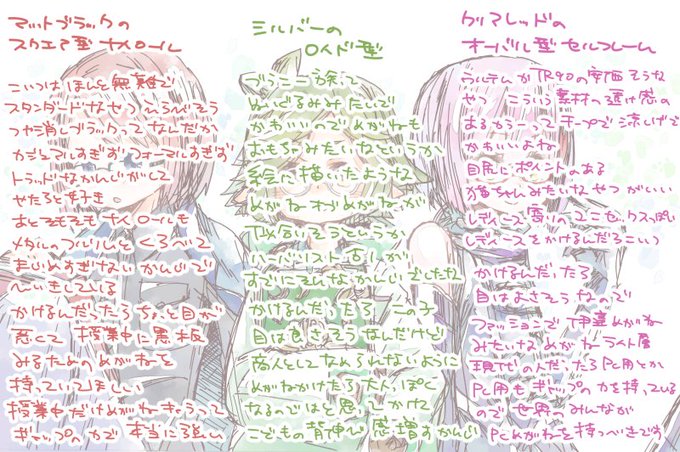 マットブラックの
スクエア型 ナイロール
こいつはほんと無難で
スタンダードなやつ いろんそう
つや消しブラックってなんだか
カジュアルすぎずフォーマルすぎず
トラッドなかんじがして
やたらと好き
あとそもそもナイロールも
メタルのフルリムとくらべて
まじめすぎけない かんじで
へいきしている
かけるんだったらちょっと目が
悪くて 授業中に黒板
みるためのめがねを
持っていてほしい
授業中だけめがねキャラって
ギャップの力で本当に強い
シルバーの
ロイド型
ブラニー
ぬいぐるみみたいで
かわいいので めがねも
おもちゃみたいなというか
絵に描いたような
めがねオブめがねが
似合いそうというか
ハーバリスト古しが
すでにそんなかんじでしたね
かけるんだったら この子
目は良さそうなんだけど
商人としてなめられないように
めがねかけたら大人っぽく
なるのではと思ってかける
こどもの背伸び感増すかんじ
クリアレッドの
オーバル型セルフレーム
ウルテムかTR90の安価そうな
やつ こういう素材の透け感の
あるカラーって チープで涼しげで
かわいいよね
目尻にポイントのある
猫ちゃんみたいなやつがいい
レディース寄りのユニセックスっぽい
レディースをかけるんだろこいつ
かけるんだったら
目はよさそうなので
ファッションで伊達めがね
みたいなめがねライト層
現代の人だったらPC用とか
PC用もギャップの力を持っている
ので世界のみんなが
PCめがねを持つべきです